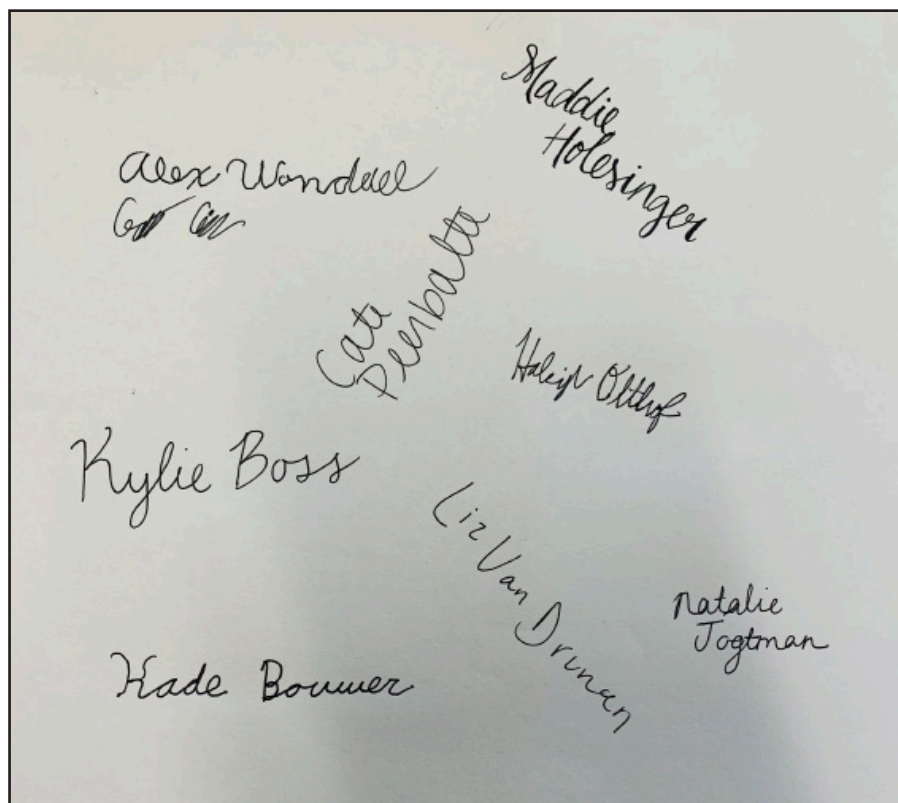 Maddie
Holesinger
Alex Wonddel
Cate
Peerbalte
Haleigh Olthof
Kylie Boss
Liz Van Drunan
Natalie
Jogtman
Kade Bouwer